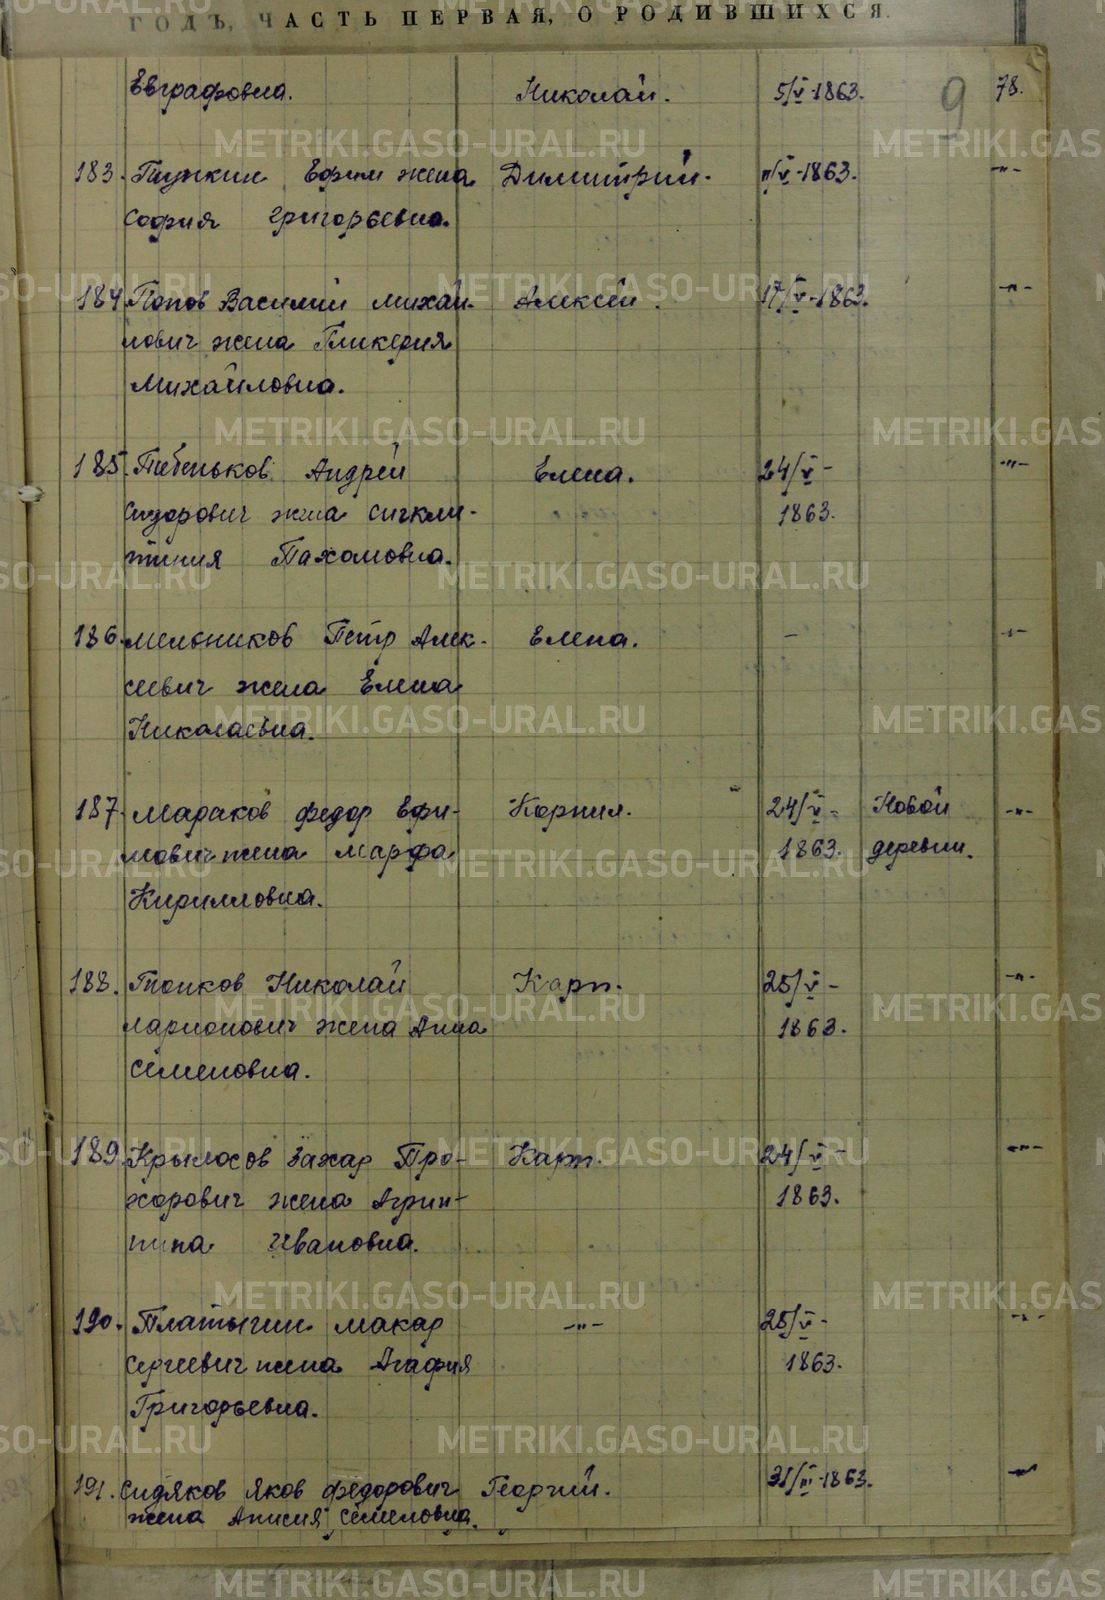 ГОДЪ, ЧАСТЬ ПЕРВАЯ, О РОДИВШИХСЯ.
Евграфовна. Николай. 5/V-1863. 9 78.
183. Ефим жена Димитрий. 11/V-1863. -"-
София Григорьевна.
184 Попов Василий Михай- Алексей. 17/V-1863. -"-
лович жена Гликерия
Михайловна.
185. Андрей Елена. 24/V- -"-
Сидорович жена Сигкли-
тиния Пахомовна. 1863.
186. Мельников Петр Алек- Елена. - -"-
сеевич жена Елена
Николаевна.
187. Мараков Федор Ефи- Корнил. 24/V- Новой -"-
мович жена Марфа 1863. деревни.
Кирилловна.
188. Топков Николай Карп. 25/V- -"-
Ларионович жена Анна 1863.
Семеновна.
189. Крылосов Захар Про- Карп. 24/V- -"-
хорович жена Агрип- 1863.
пина Ивановна.
190. Платыгин Макар -"- 25/V- -"-
Сергеевич жена Агафия 1863.
Григорьевна.
191. Сидяков Яков Федорович Георгий. 31/III-1863. -"-
жена Анисия Семеновна.
METRIKI.GASO-URAL.RU